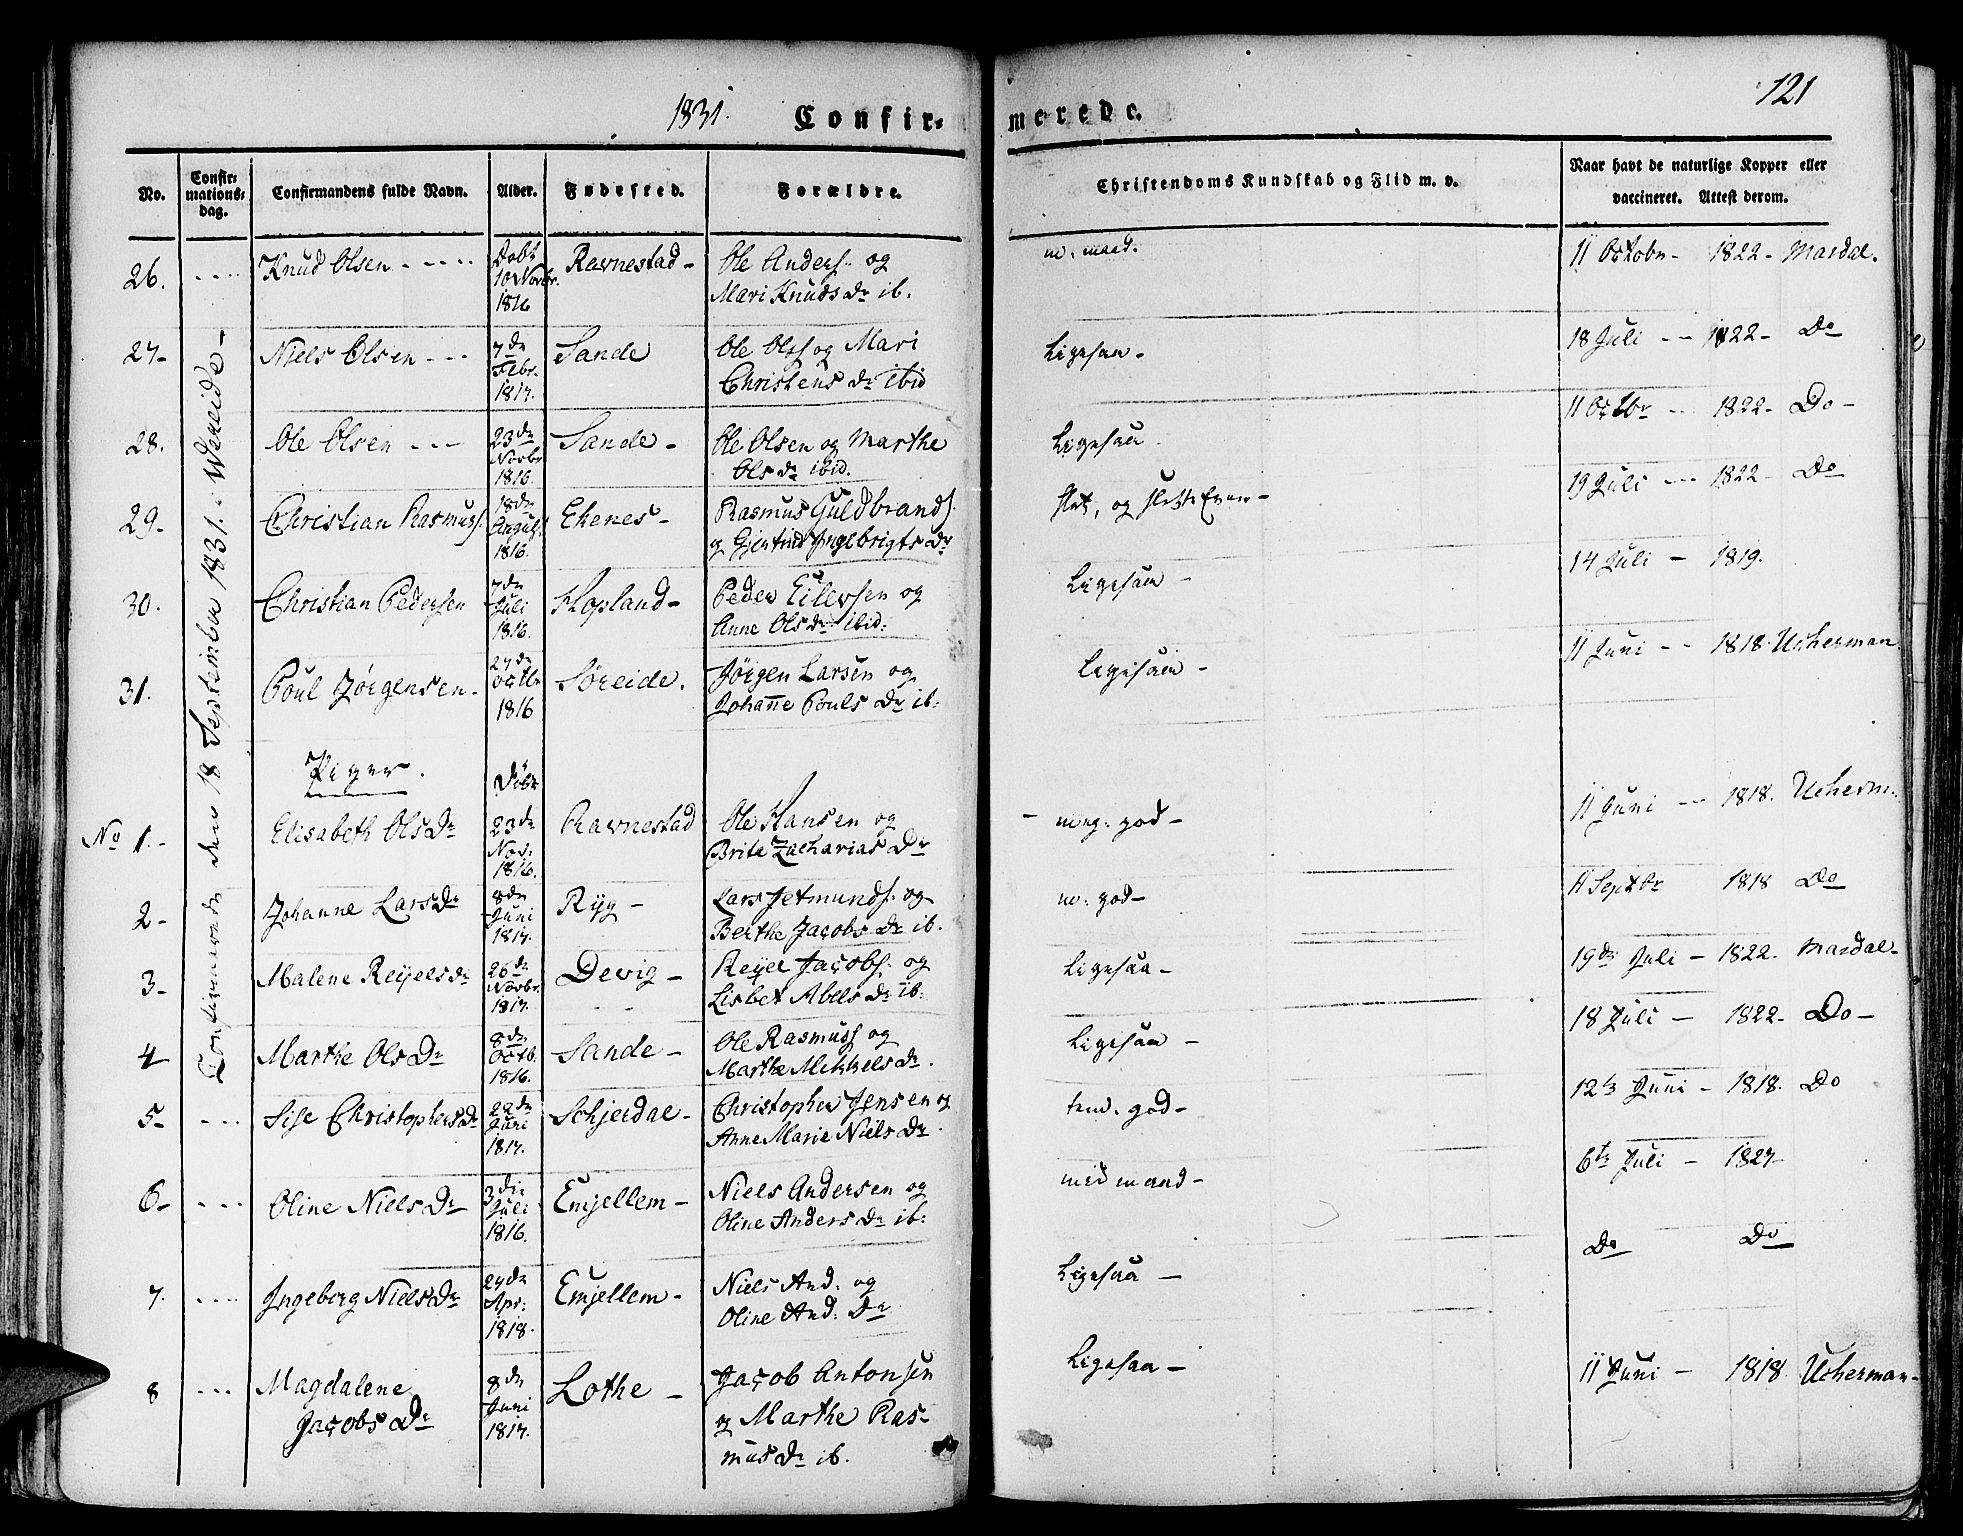 1831. Confirmerede. 121
No. Confirmationsdag. Confirmandens fulde Navn. Alder. Fødested. Forældre. Christendoms Kundskab og Flid m. v. Naar havt de naturlige Kopper eller vaccineret. Attest derom.
Confirmerede den 18 September 1831 i Wereide -
26. Knud Olsen - Døbt 10 Novbr. 1816 Ravnestad - Ole Anders. og Mari Knuds Dr ib. m. maad. 11 Octobr - 1822 - Mardal.
27 - Niels Olsen - 7de Febr. 1817. Sande Ole Ols. og Mari Christens Dr ibid Ligesaa - 18 Juli - 1822 - Do
28. Ole Olsen - 23de Novbr 1816. Sande - Ole Olsen og Marthe Ols Dr ibid. Ligesaa 11 Octbr - 1822 - Do -
29 - Christian Rasmuss. 18de August 1816. Ekenes - Rasmus Guldbrands. og Gjertrud Ingebrigts Dr slet, og slette Evner - 19 Juli - 1822 - Do
30. Christian Pedersen 7de Juli 1816. Hopland - Peder Eilersen og Anne Ols Dr ibid: Ligesaa - 14 Juli - 1819.
31. Poul Jørgensen - 27de Octbr 1816 Søreide. Jørgen Larsen og Johanne Pouls Dr ib: Ligesaa - 11 Juni - 1818. Ucherman
Piger. Døbt
No 1. - Elisabeth Ols Dr 23de Nov: 1816. Ravnestad Ole Hansen og Brite Zacharias Dr - meg: god - 11 Juni - 1818. Ucherm.
2 - Johanne Lars Dr 8de Juni 1817. Ryg - Lars Jetmunds. og Berthe Jacobs Dr ib. m: god - 11 Septbr 1818 Do
3 - Malene Reyels Dr 26de Novbr. 1817. Devig - Reyel Jacobs. og Lisbet Abels Dr ib: Ligesaa - 19de Juli - 1822. Mardal -
4 Marthe Ols Dr 8de Octb. 1816. Sande - Ole Rasmuss og Marthe Mikkels Dr. Ligesaa - 18 Juli - 1822 - Do -
5 - Sise Christophers Dr 22de Juni 1817. Schjerdal - Christopher Jensen og Anne Marie Niels Dr. tem. god - 12te Juni - 1818. Do
6 - Oline Niels Dr 3die Juli 1816. Emjellem - Niels Andersen og Oline Anders Dr ib: mid maad - 6te Juli - 1827
7. Ingeborg Niels Dr 24de Apr: 1818. Emjellem - Niels And. og Oline And: Dr Ligesaa - Do Do
8 Magdalene Jacobs Dr 8de Juni 1817. Lothe - Jacob Antonsen og Marthe Rasmus Dr ib. Ligesaa - 11 Juni - 1818. Ucherman -